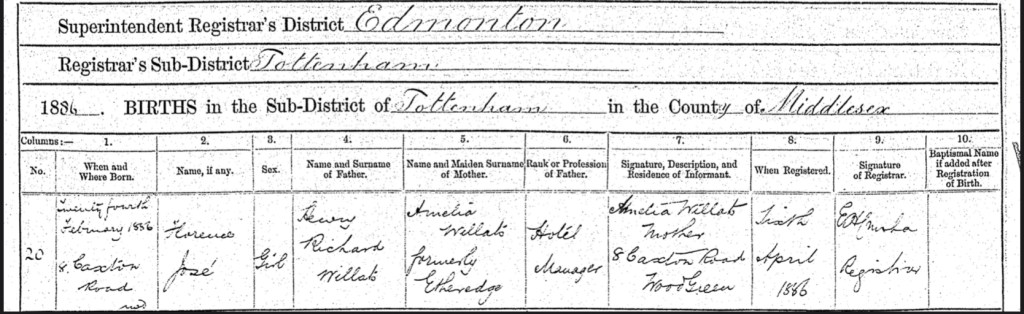 Superintendent Registrar's District Edmonton
Registrar's Sub-District Tottenham
1886. BIRTHS in the Sub-District of Tottenham in the County of Middlesex
Columns:— 1. 2. 3. 4. 5. 6. 7. 8. 9. 10.
No. When and Where Born. Name, if any. Sex. Name and Surname of Father. Name and Maiden Surname of Mother. Rank or Profession of Father. Signature, Description, and Residence of Informant. When Registered. Signature of Registrar. Baptismal Name if added after Registration of Birth.
20
Twenty fourth
February 1886
8 Caxton
Road
Florence
José
Girl
Henry
Richard
Willats
Amelia
Willats
formerly
Etheredge
Hotel
Manager
Amelia Willats
Mother
8 Caxton Road
Wood Green
Sixth
April
1886
Registrar